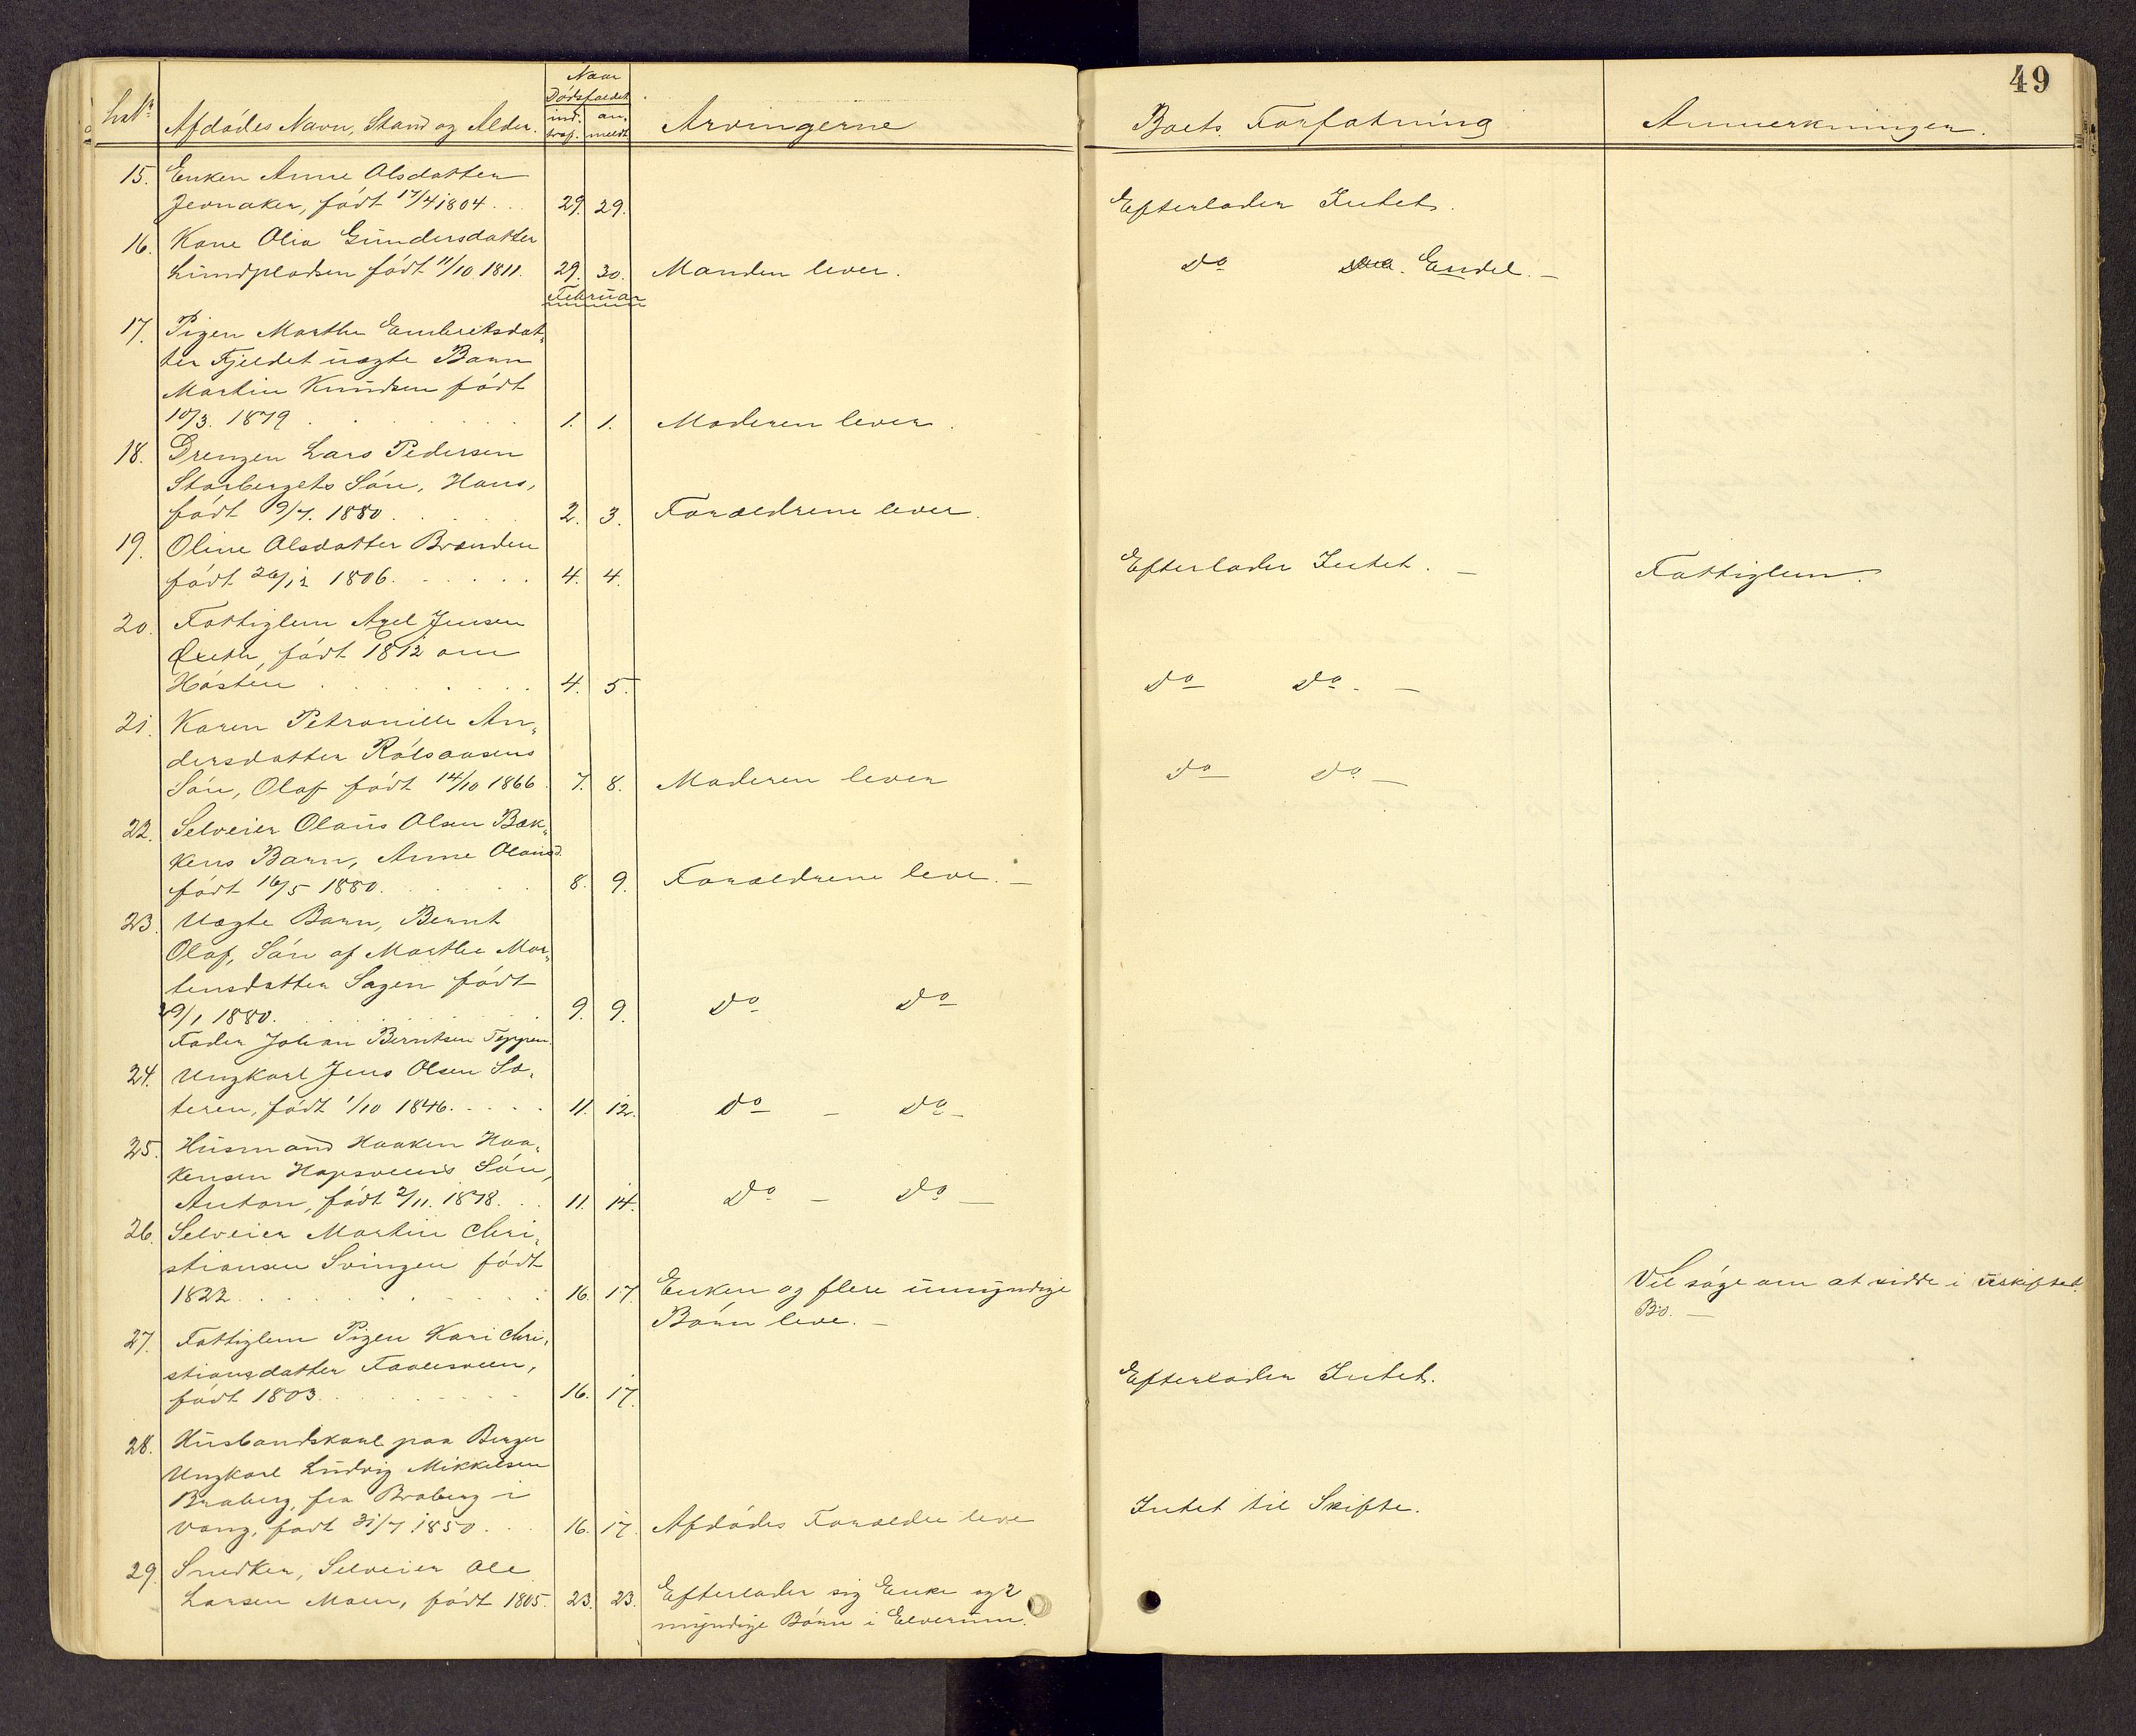 49
Naar
Dødsfaldet
LbN. Afdødes Navn, Stand og Alder. indtraf. anmeldt Arvingerne Boets Forfatning Anmerkninger.
15. Enken Anne Olsdatter
Jevnaker, født 17/4 1804 . . . 29. 29. Efterlader Intet.
16. Kone Olia Gundersdatter
Lundpladsen født 11/10. 1811. 29. 30. Manden lever. do Endel. —
Februar
17. Pigen Marthe Embretsdat„
ter Fjeldet uægte Barn
Martin Knudsen født
10/3. 1879 . . . 1. 1. Moderen lever.
18. Drengen Lars Pedersen
Storbergets Søn, Hans,
født 9/7. 1880 . . . 2. 3. Forældrene lever.
19. Oline Olsdatter Brænden
født 26/12 1806. . . . 4. 4. Efterlader Intet. — Fattiglem.
20. Fattiglem Axel Jensen
født 1812 om
Høsten . . . 4. 5. do do. —
21. Karen Petronille An„
dersdatter Rólsaasens
Søn, Olaf født 14/10 1866. 7. 8. Moderen lever do do —
22. Selveier Olaus Olsen Bak„
kens Barn, Anne Olausd.
født 16/5 1880. . . . 8. 9. Forældrene leve. —
23. Uægte Barn, Bernt
Olaf, Søn af Marthe Mor„
tensdatter Sagen født
29/1 1880. . . . 9. 9. do do
Fader Johan Berntsen Teppen.
24. Ungkarl Jens Olsen Sæ„
teren, født 1/10 1846. . . . 11. 12. do — do —
25. Husmand Haaken Haa„
kensen Hapsveens Søn,
Anton, født 2/11. 1878. . . 11. 14. do — do —
26. Selveier Martin Chri„
stiansen Svingen født
1822 . . . 16. 17. Enken og flere umyndige Vil søge om at sidde i uskiftet
Børn leve. — Bo. —
27. Fattiglem Pigen Kari Chri„
stiansdatter
født 1803. . . . 16. 17. Efterlader Intet.
28. Husbandskarl paa Berger
Ungkarl Ludvig Mikkelsen
Braberg, fra Braberg i
Vang, født 31/7 1850. . . 16. 17. Afdødes Forældre leve Intet til Skifte.
29. Snedker, Selveier Ole
Larsen Moen, født 1805. 23. 23. Efterlader sig Enke og 2
myndige Børn i Elverum.